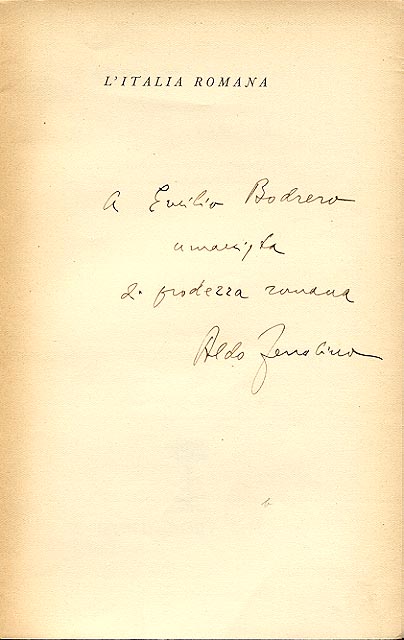 L'ITALIA ROMANA
A Emilio Bodrero
umanista
di prodezza romana
Aldo Ferrabino